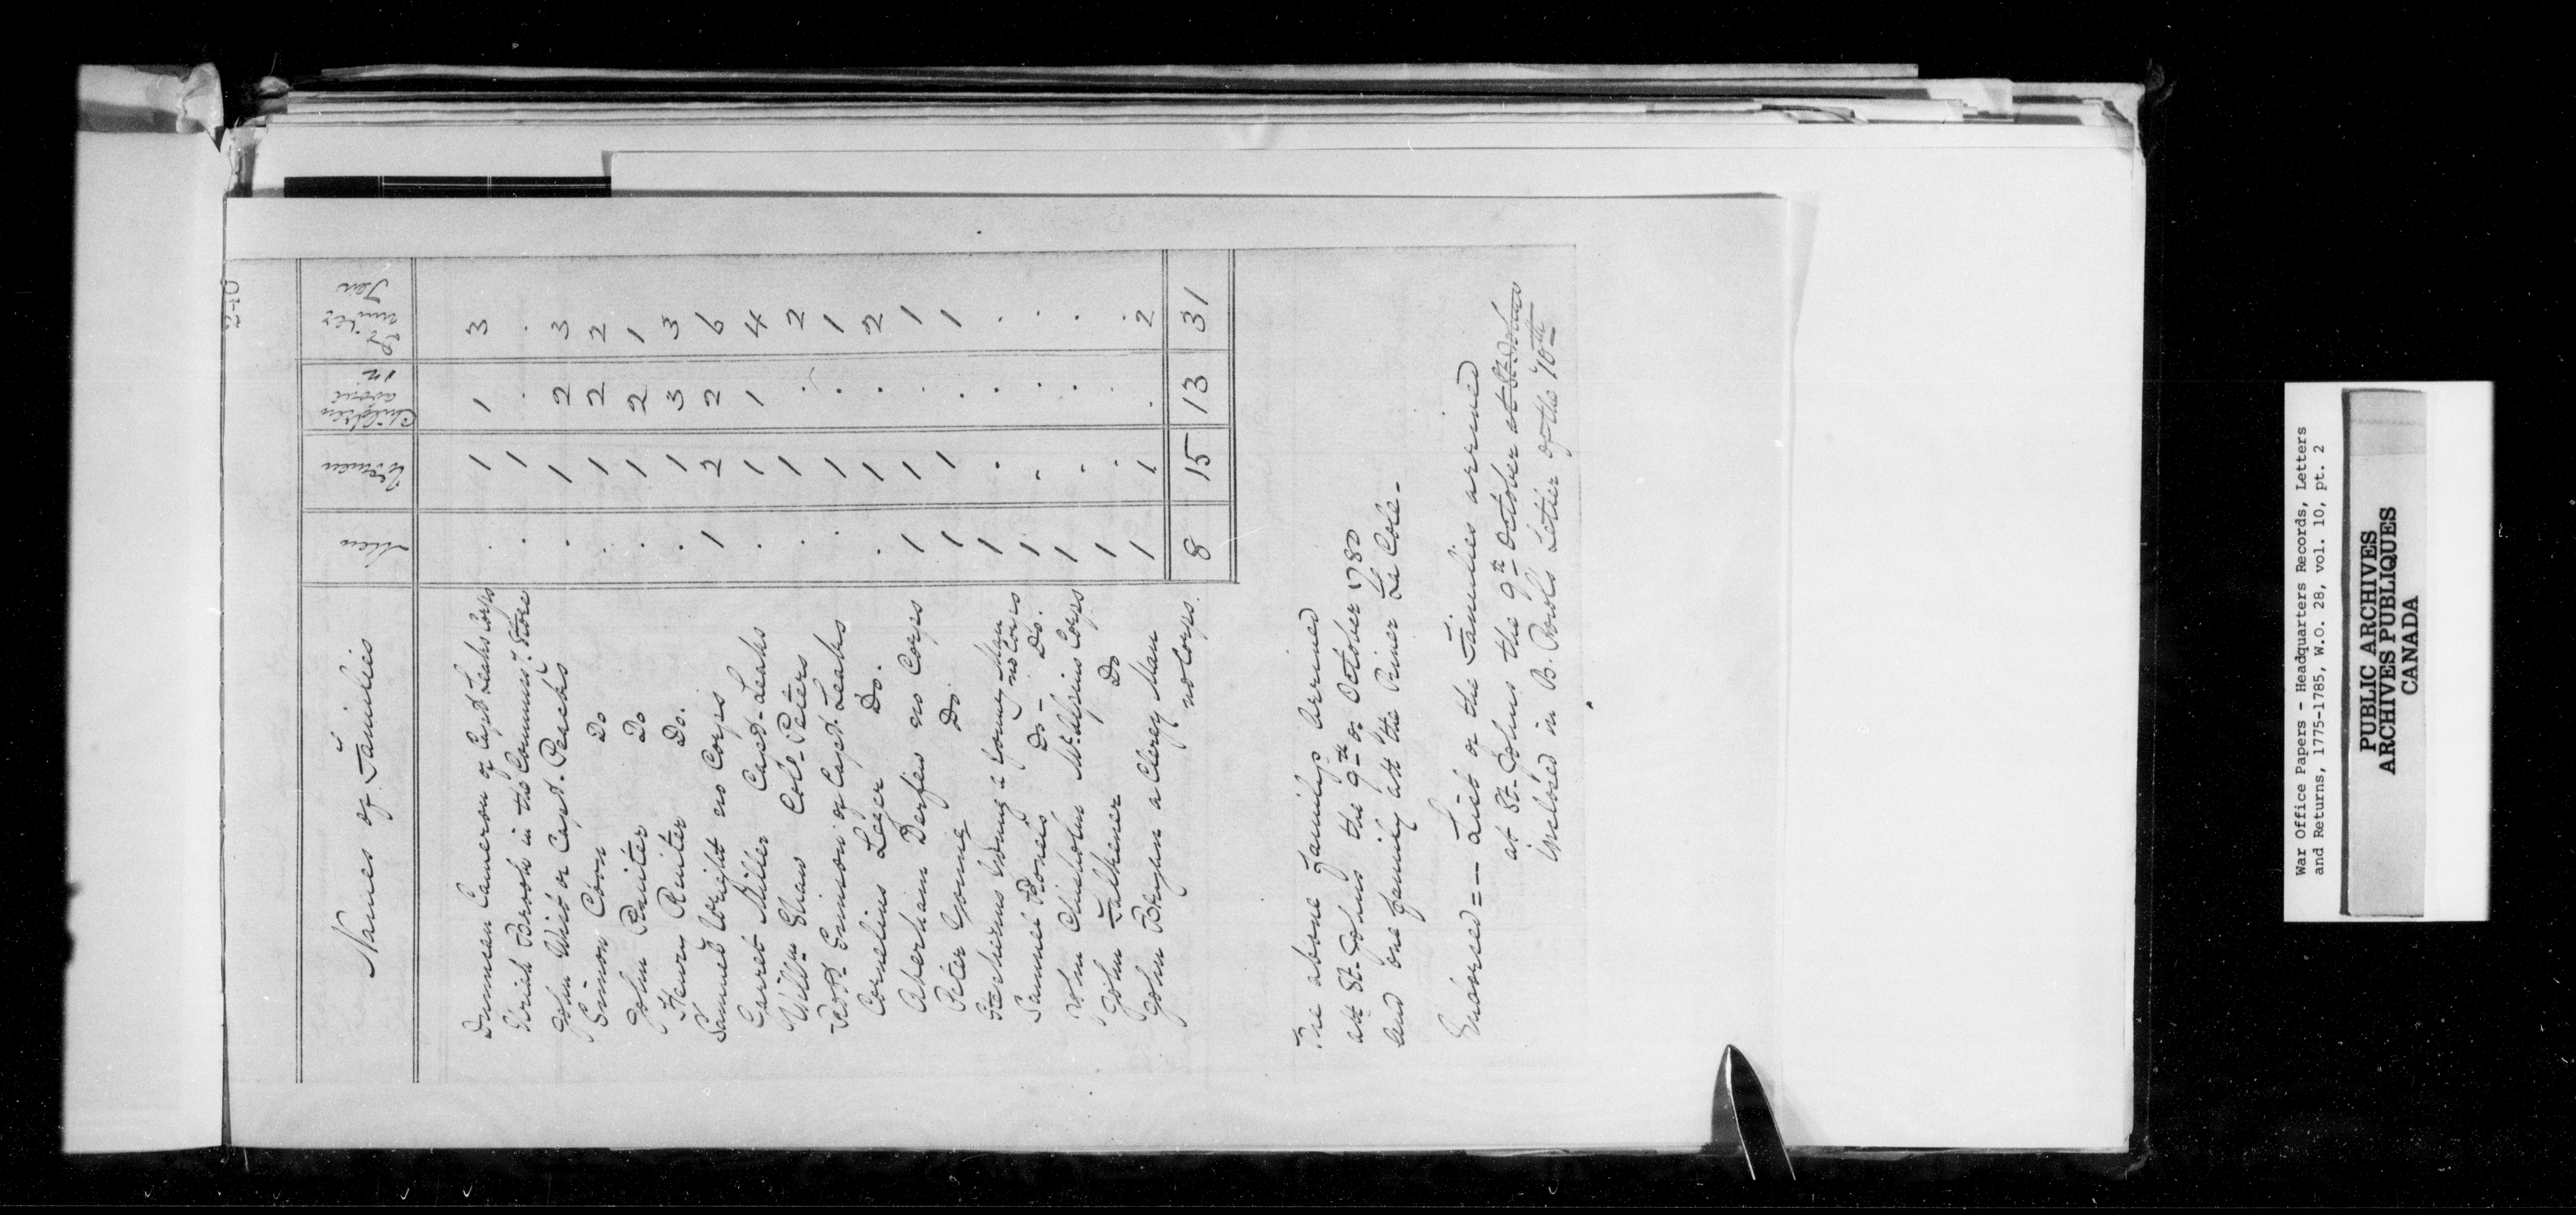 240
Names of Families | Men | Women | Children above 10 | Do. under Ten
Duncan Cameron of Capt. Leaks Corps . 1 1 3
Brook in the Commis.y Store . 1 . .
John Wist of Capt. Peachs . 1 2 3
Simon Coon Do . 1 2 2
John Ruiter Do . 1 2 1
Henry Ruiter Do. . 1 3 3
Samuel Wright no Corps 1 2 2 6
Garret Miller Capt. Leaks . 1 1 4
Will.m Shaw Col.o Peters . 1 . 2
Robt. Simson of Capt. Leaks 1 . 1
Cornelius Leger Do. . 1 . 2
Aberham Darfew no Corps 1 1 . 1
Peter Young Do 1 1 . 1
Young a Young Man no Corps 1 . . .
Samuel Roneis Do - Do. 1 - . .
John Chisholm Mc.Alpins Corps 1 . . .
John Falkener Do 1 . .
John Bryan a Clergy Man no Corps. 1 1 . 2
8 15 13 31
The above familys Arrived
att St. Johns the 9th of October 1780
and one family att the River La Cole -
Endorsed = - List of the Families arrived
at St. Johns the 9th October at St. Johns
inclosed in B. Powel's Letter of the 10th
War Office Papers - Headquarters Records, Letters
and Returns, 1775-1785, W.O. 28, vol. 10, pt. 2
PUBLIC ARCHIVES
ARCHIVES PUBLIQUES
CANADA